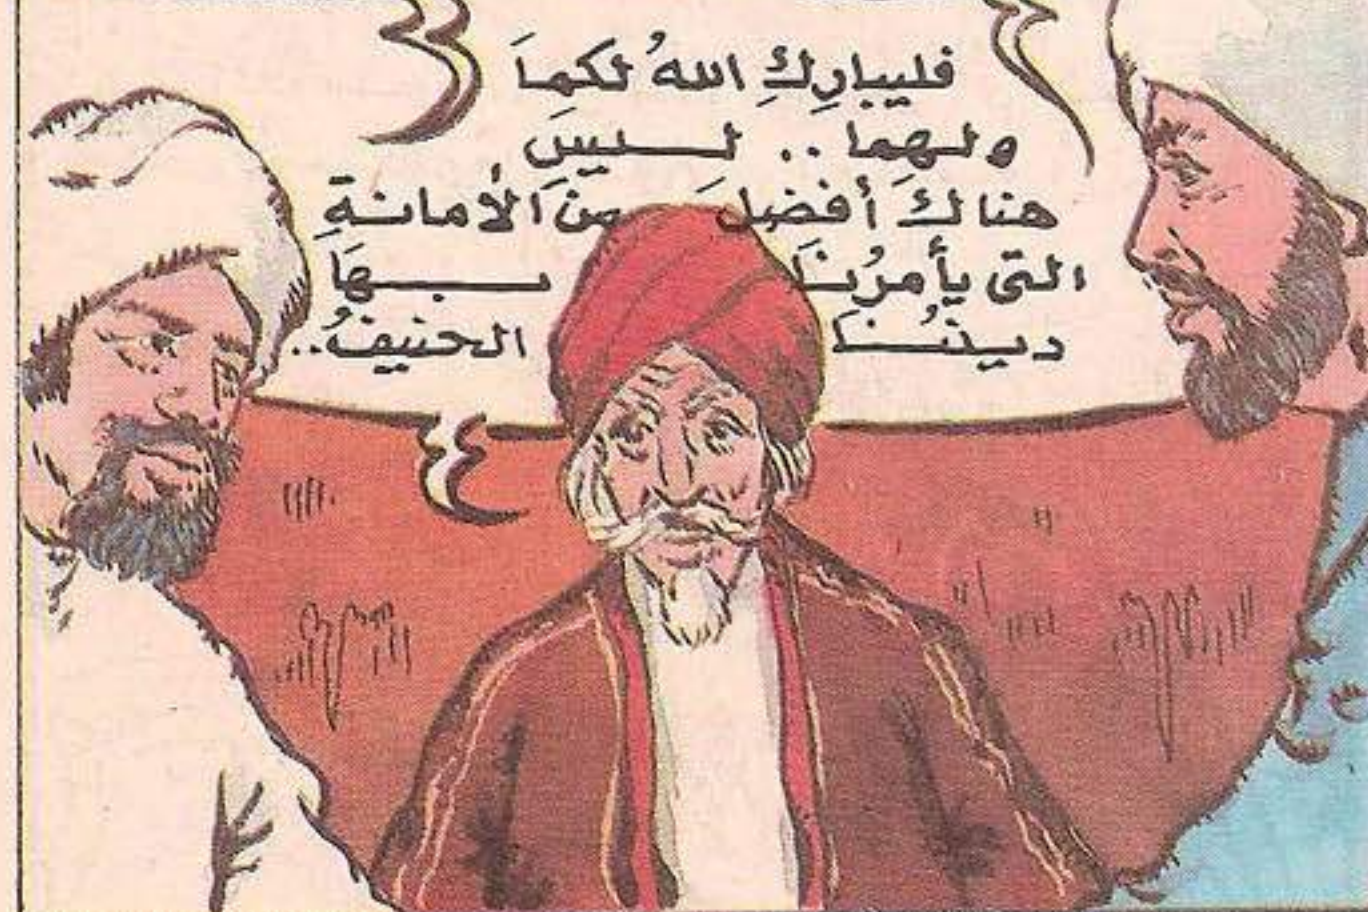 فليبارِكِ اللهُ لكما
ولهما .. ليسَ
هناك أفضلَ منَ الأمانةِ
التى يأمرُنا بهَا
دينُنا الحنيفُ..